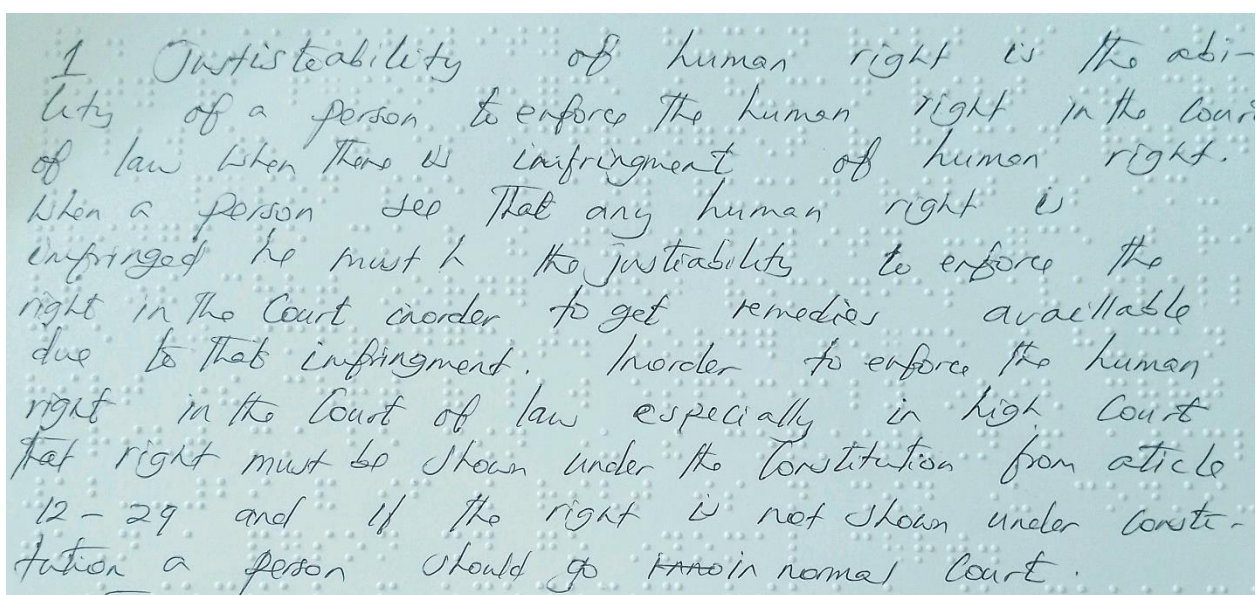 1 Justisteability of human right is the abi-
lity of a person to enforce the human right in the Cour
of law when there is infringment of human right.
When a person see that any human right is
infringed he must h the justiability to enforce the
right in the Court inorder to get remedies availlable
due to that infringment. Inorder to enforce the human
right in the Court of law especially in high Court
that right must be shown under the Constitution from aticle
12 - 29 and if the right is not shown under consti-
tution a person should go in normal Court.